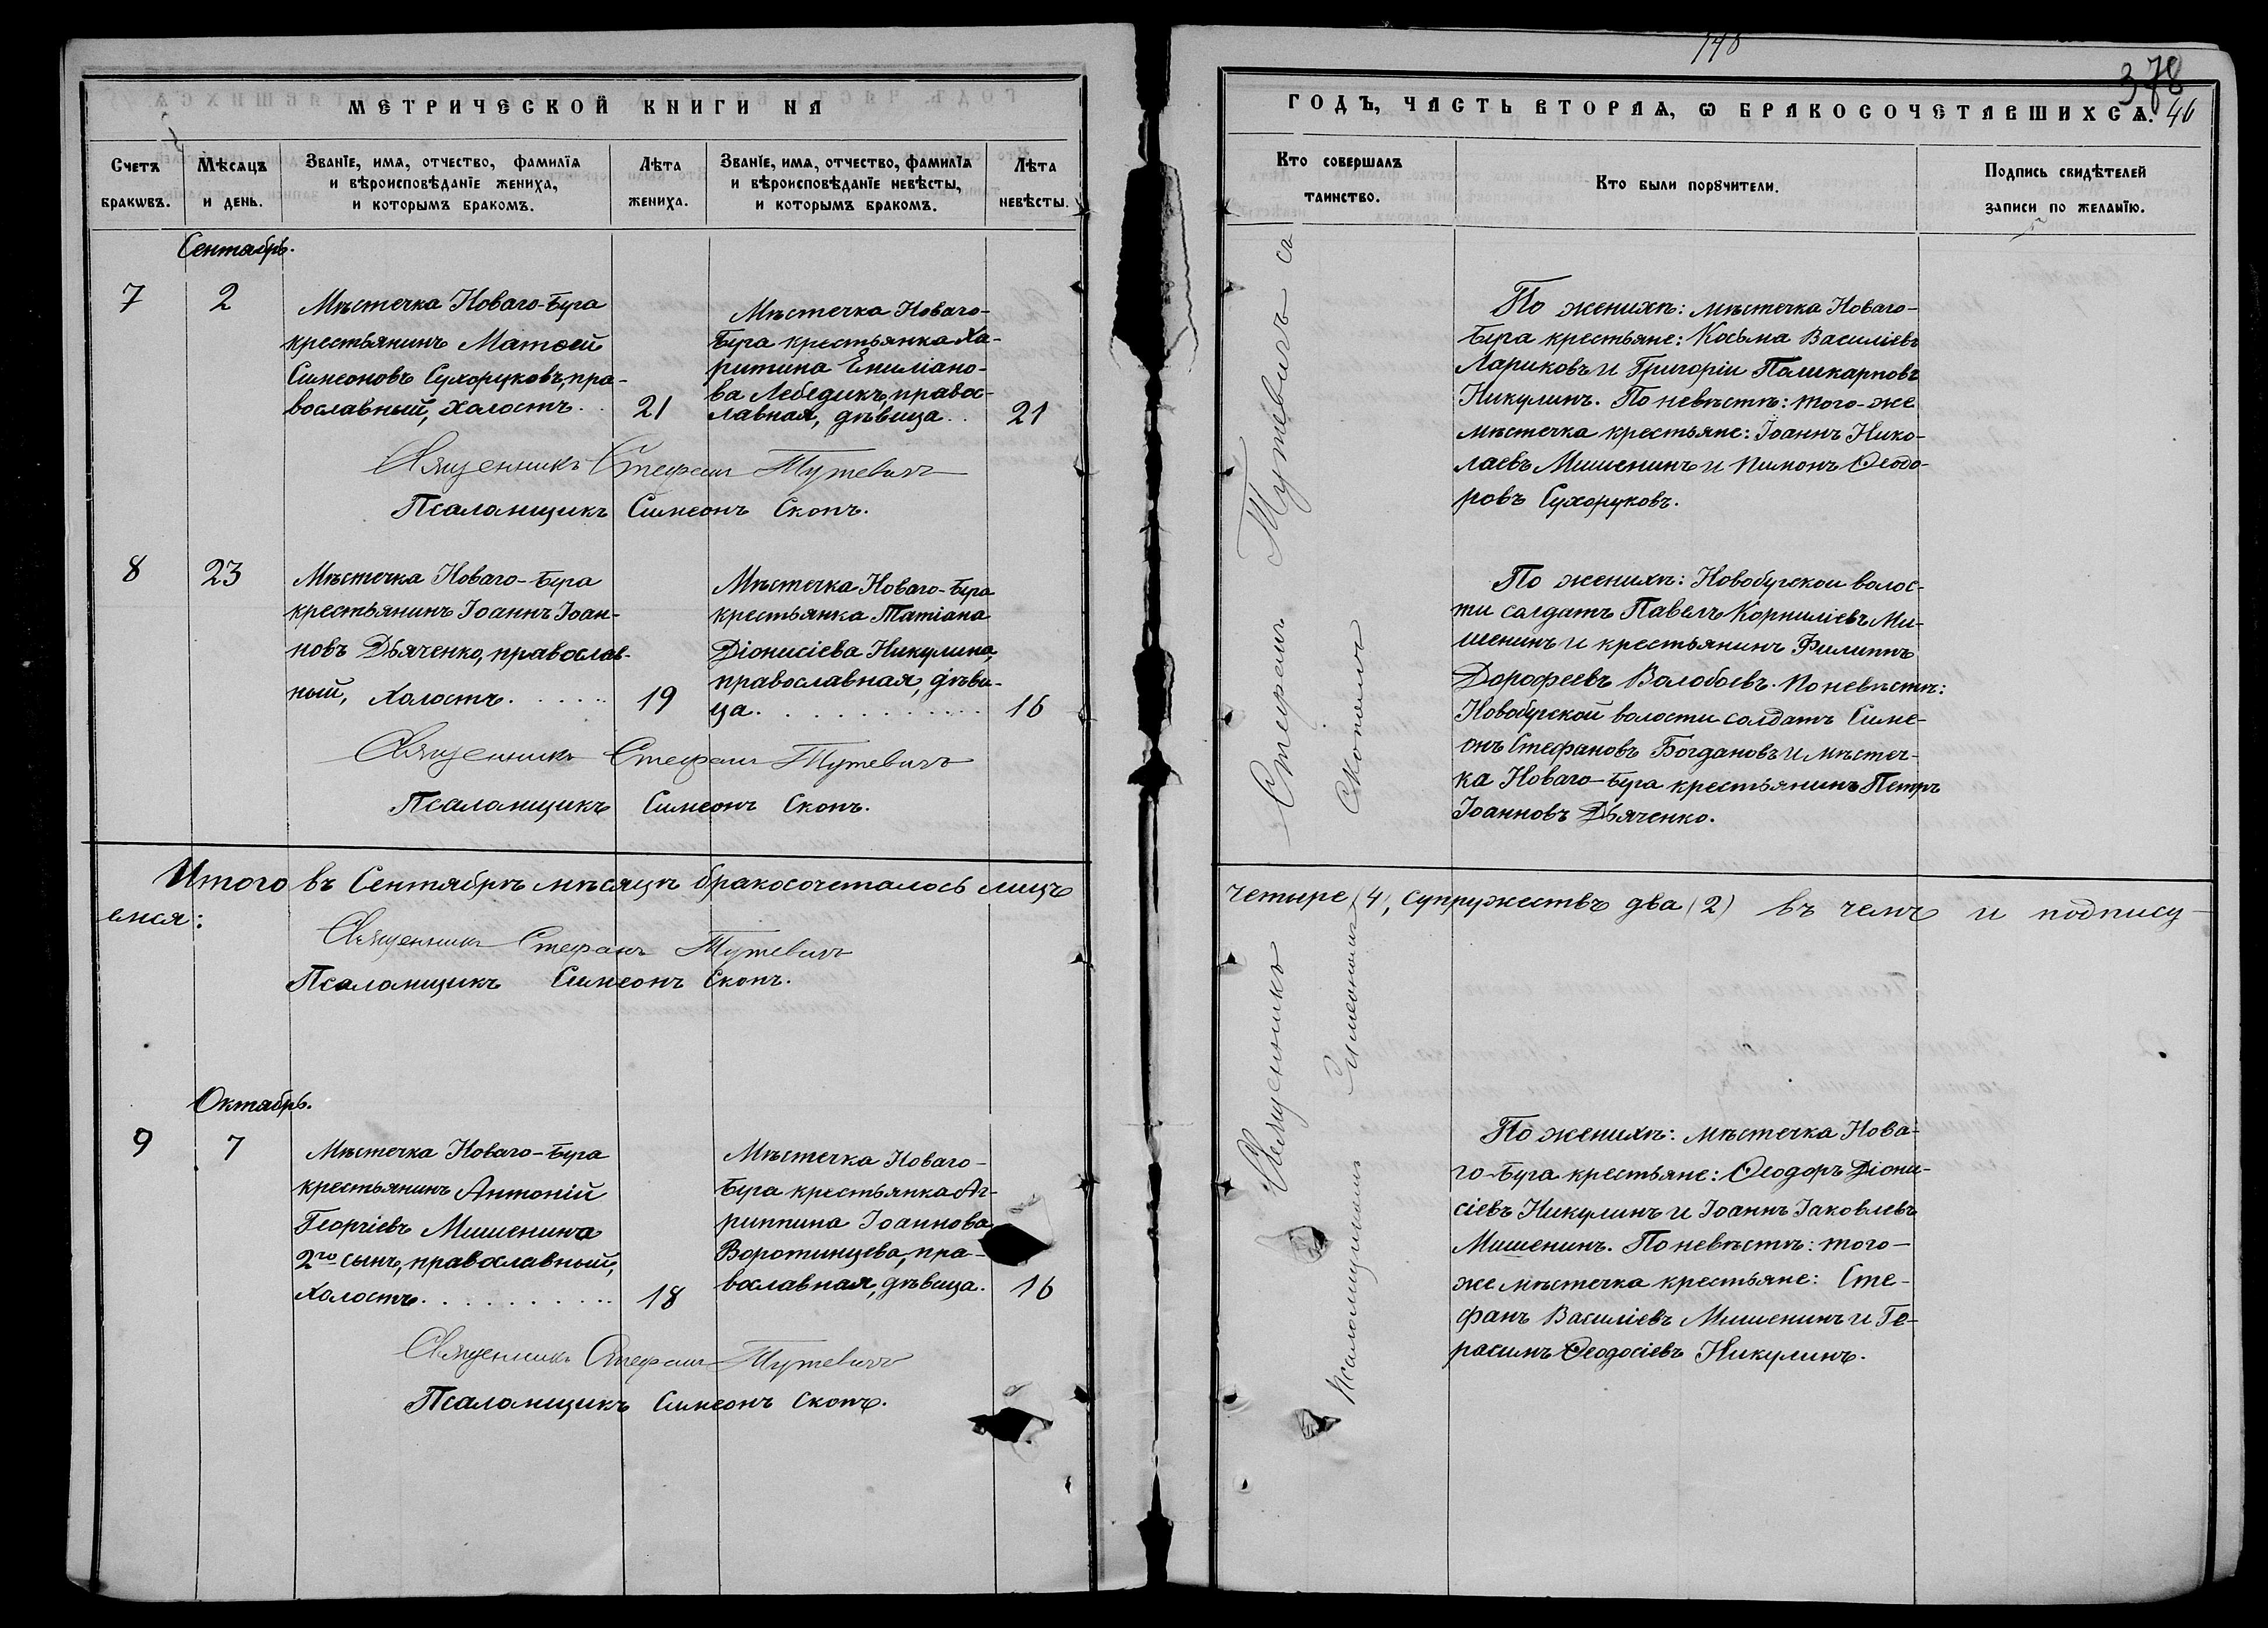 МЕТРИЧЕСКОЙ КНИГИ НА
Счетъ браковъ.
Мѣсяцъ и день.
Званіе, имя, отчество, фамилія
и вѣроисповѣданіе жениха,
и которымъ бракомъ.
Лѣта жениха.
Званіе, имя, отчество, фамилія
и вѣроисповѣданіе невѣсты,
и которымъ бракомъ.
Лѣта невѣсты.
Сентябрь.
7
2
Мѣстечка Новаго-Буга
крестьянинъ Матѳей
Симеоновъ Сухоруковъ, пра-
вославный, холостъ..
21
Мѣстечка Новаго-
Буга крестьянка Ха-
ритина Емиліано-
ва Лебедикъ, правос-
лавная, дѣвица..
21
Священникъ Стефанъ Тутевичъ
Псаломщикъ Симеонъ Скопъ.
8
23
Мѣстечка Новаго-Буга
крестьянинъ Іоаннъ Іоан-
новъ Дьяченко, православ-
ный, холостъ.....
19
Мѣстечка Новаго-Буга
крестьянка Татіана
Діонисіева Никулина,
православная, дѣви-
ца...........
16
Священникъ Стефанъ Тутевичъ
Псаломщикъ Симеонъ Скопъ.
Итого въ Сентябрѣ мѣсяцѣ бракосочеталось лицъ
емся:
Священникъ Стефанъ Тутевичъ
Псаломщикъ Симеонъ Скопъ.
Октябрь.
9
7
Мѣстечка Новаго-Буга
крестьянинъ Антоній
Георгіевъ Мишенина
2го сынъ, православный,
холостъ.........
18
Мѣстечка Новаго-
Буга крестьянка Аг-
риппина Іоаннова
Воротинцева, пра-
вославная, дѣвица.
16
Священникъ Стефанъ Тутевичъ
Псаломщикъ Симеонъ Скопъ.
148
378
46
ГОДЪ, ЧАСТЬ ВТОРАЯ, Ѡ БРАКОСОЧЕТАВШИХСЯ.
Кто совершалъ
таинство.
Кто были порꙋчители.
Подпись свидѣтелей
записи по желанію.
Священникъ Стефанъ Тутевичъ съ
Псаломщикомъ Симеономъ Скопомъ
По женихѣ: мѣстечка Новаго-
Буга крестьяне: Косьма Василіевъ
Лариковъ и Григорій Поликарповъ
Никулинъ. По невѣстѣ: того-же
мѣстечка крестьяне: Іоаннъ Нико-
лаевъ Мишенинъ и Пимонъ Ѳеодо-
ровъ Сухоруковъ.
По женихѣ: Новобугской волос-
ти солдатъ Павелъ Корниліевъ Ми-
шенинъ и крестьянинъ Филиппъ
Дорофеевъ Волобоевъ. По невѣстѣ:
Новобугской волости солдатъ Симе-
онъ Стефановъ Богдановъ и мѣстеч-
ка Новаго-Буга крестьянинъ Петръ
Іоанновъ Дьяченко.
четыре (4), супружествъ два (2) въ чемъ и подпису-
По женихѣ: мѣстечка Нова-
го-Буга крестьяне: Ѳеодоръ Діони-
сіевъ Никулинъ и Іоаннъ Іаковлевъ
Мишенинъ. По невѣстѣ: того-
же мѣстечка крестьяне: Сте-
фанъ Василіевъ Мишенинъ и Ге-
расимъ Ѳеодосіевъ Никулинъ.